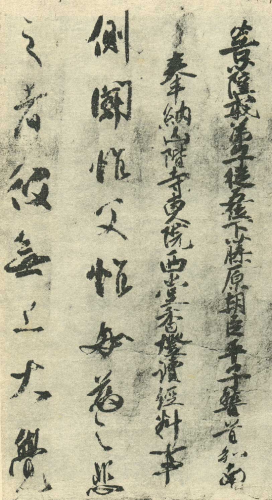 菩薩戒弟子従蔭下藤原朝臣平子稽首和南
奉納山階寺東院西堂香燈読経料事
側聞惟父惟母慈之悲
之者復無上大覺